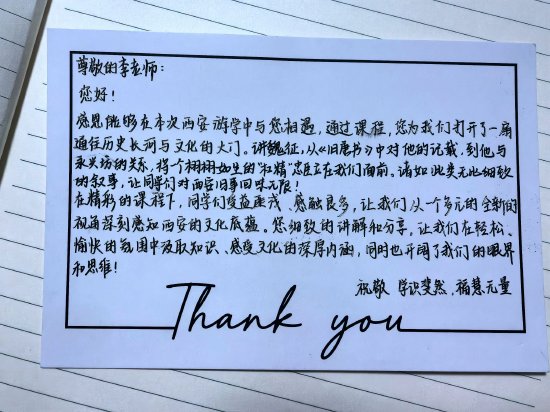 尊敬的李老师：
您好！
感恩能够在本次西安游学中与您相遇，通过课程，您为我们打开了一扇
通往历史长河与文化的大门。讲魏征，从《旧唐书》中对他的记载，到他与
永兴坊的关系，将个栩栩如生的“忠臣立在我们面前。诸如此类无比细致
的叙事，让同学们对西安旧事回味无限！
在精彩的课程下，同学们受益匪浅、感触良多，让我们从一个多元的全新的
视角深刻感知西安的文化底蕴。您细致的讲解和分享，让我们在轻松、
愉快的氛围中汲取知识、感受文化的深厚内涵，同时也开阔了我们的眼界
和思维！
祝敬 学识斐然、福慧无量
Thank you